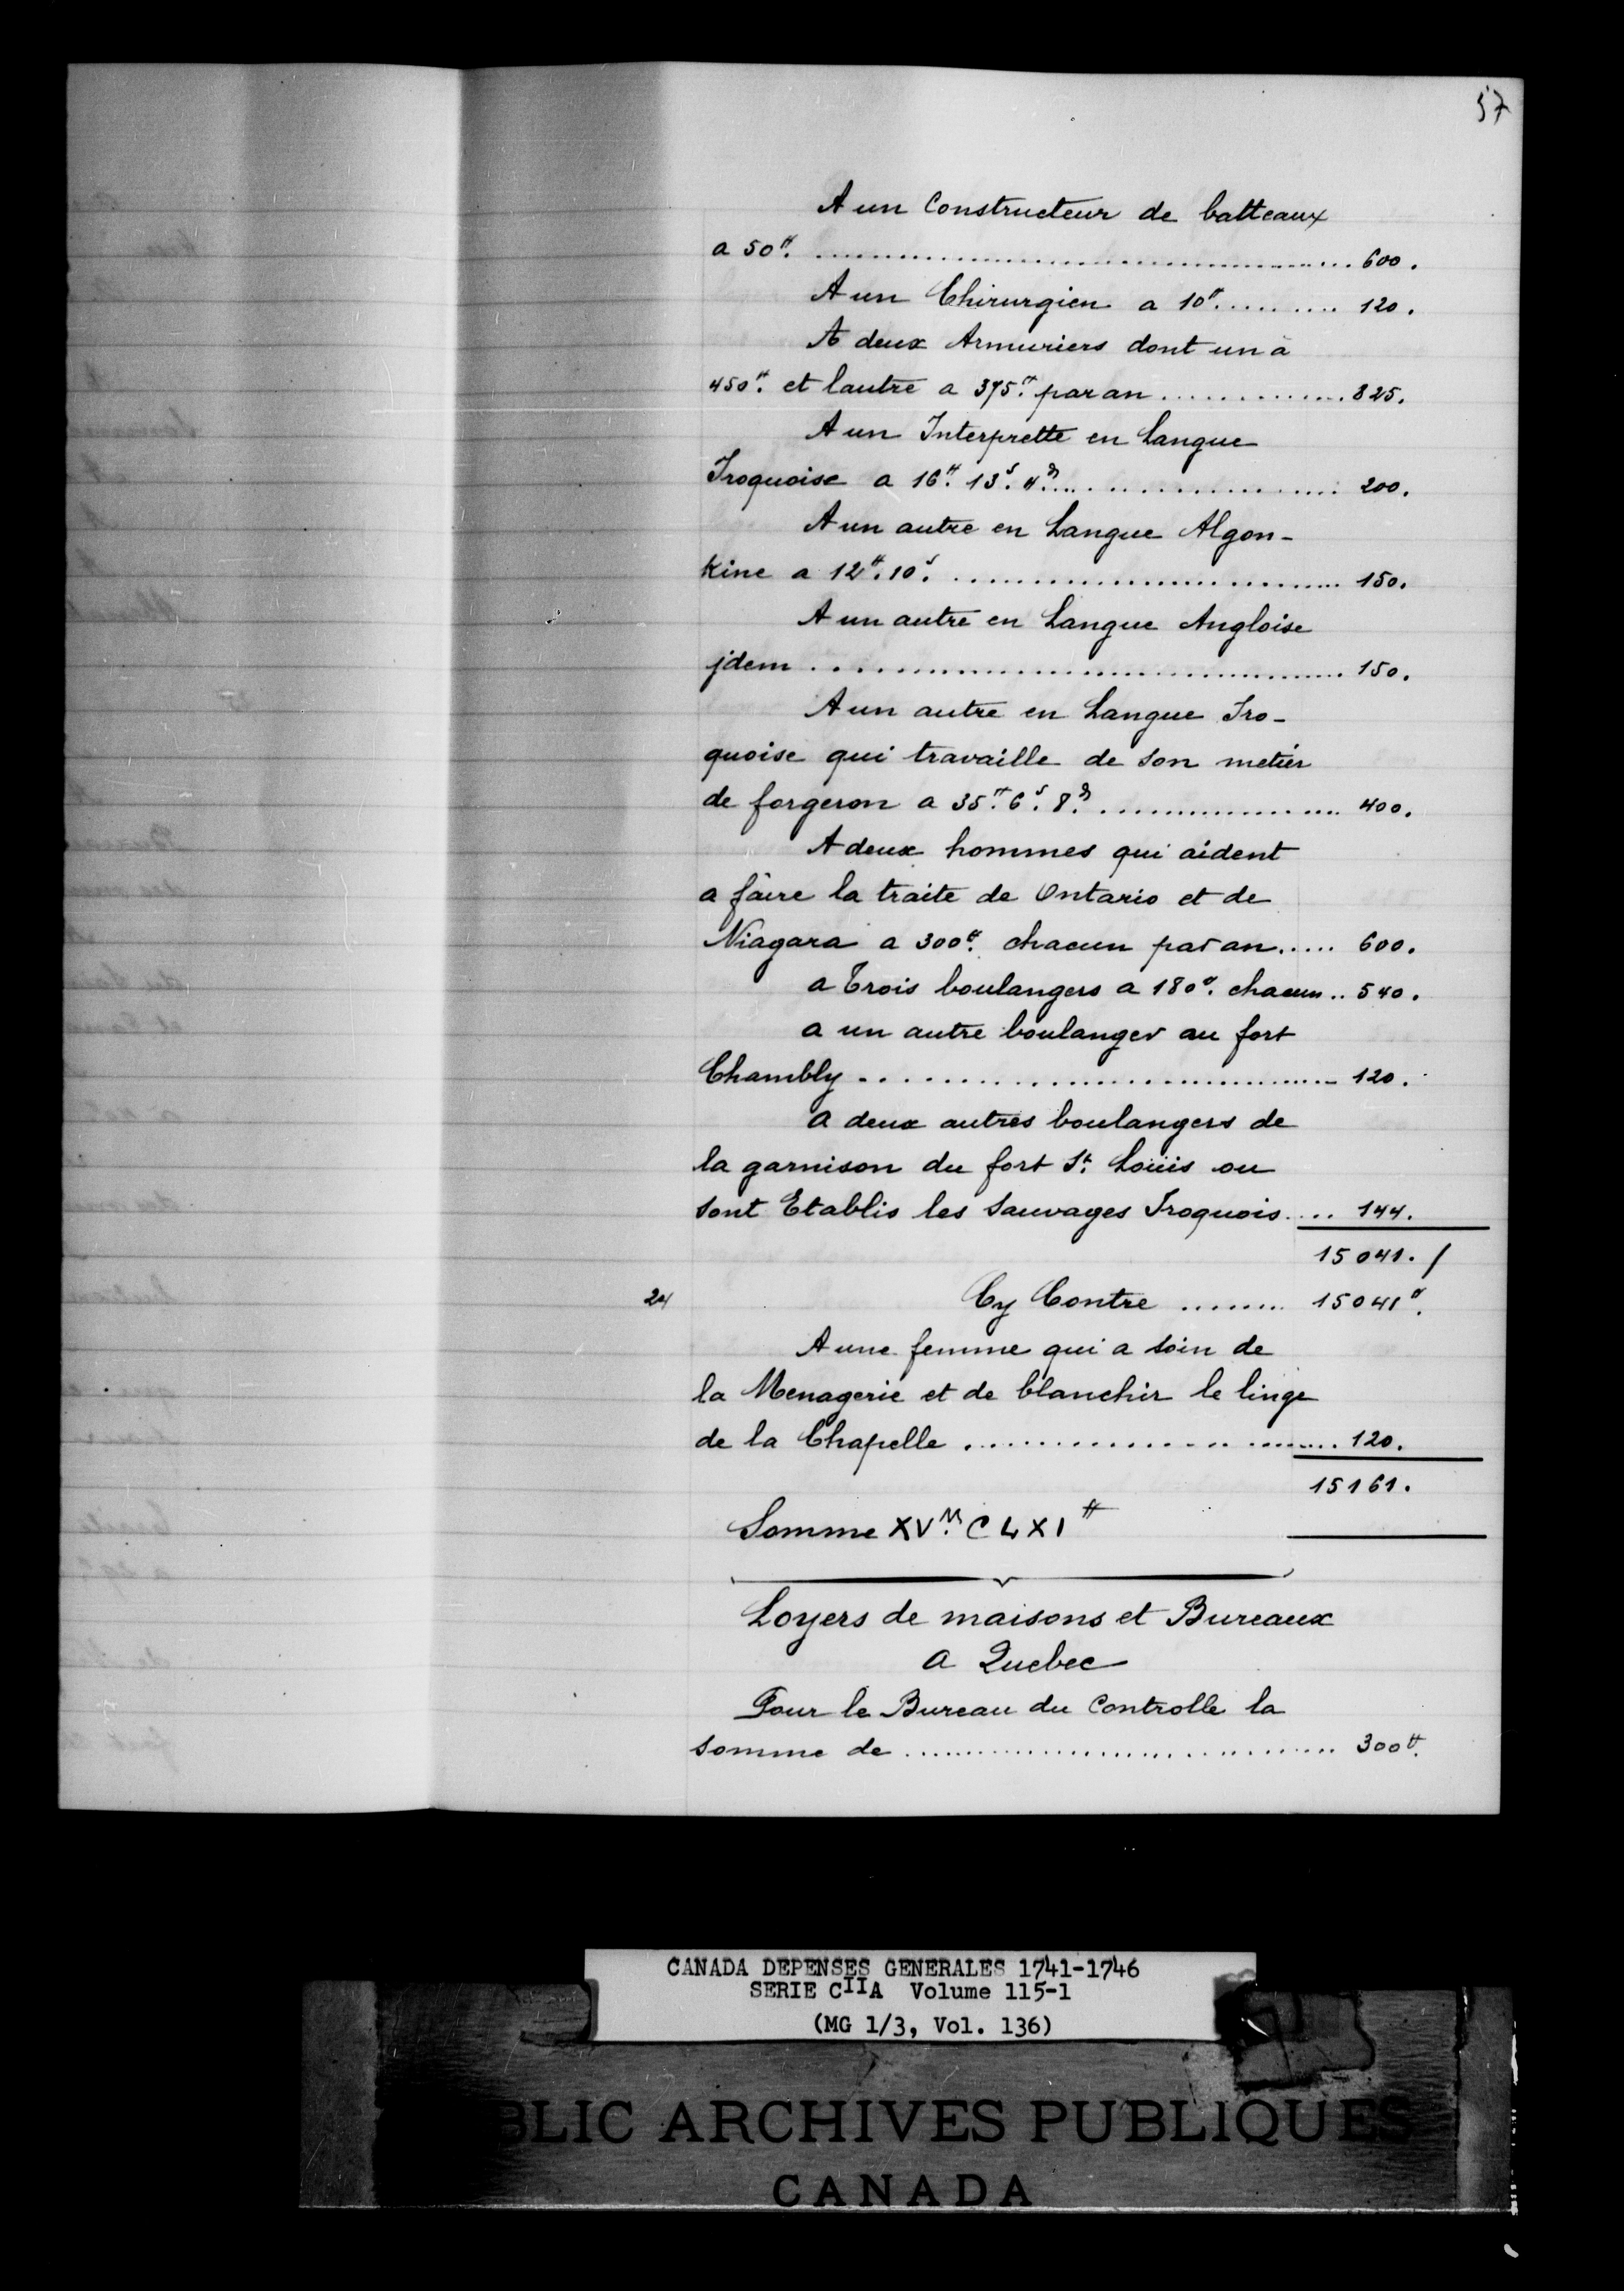 57
A un Constructeur de batteaux
a 50#. ........ 600.
A un Chirurgien a 10#. ........ 120.
A deux Armuriers dont un à
450#. et lautre a 375#. par an ........ 825.
A un Interprette en Langue
Iroquoise a 16#. 13s. 4d. ........ 200.
A un autre en Langue Algon-
kine a 12#. 10s. ........ 150.
A un autre en Langue Angloise
jdem ........ 150.
A un autre en Langue Iro-
quoise qui travaille de son metier
de forgeron a 35#. 6s. 8d. ........ 400.
A deux hommes qui aident
a faire la traite de Ontario et de
Niagara a 300#. chacun par an ..... 600.
a Trois boulangers a 180#. chacun .. 540.
a un autre boulanger au fort
Chambly ........ 120.
a deux autres boulangers de
la garnison du fort St. Loüis ou
sont Etablis les Sauvages Iroquois .... 144.
15041. /
24 Cy Contre ........ 15041#.
A une femme qui a soin de
la Menagerie et de blanchir le linge
de la Chapelle ........ 120.
15161.
Somme XVM. CLXI#
Loyers de maisons et Bureaux
a Quebec
Pour le Bureau du Controlle la
somme de ........ 300#.
CANADA DEPENSES GENERALES 1741-1746
SERIE CIIA Volume 115-1
(MG 1/3, Vol. 136)
BLIC ARCHIVES PUBLIQUES
CANADA